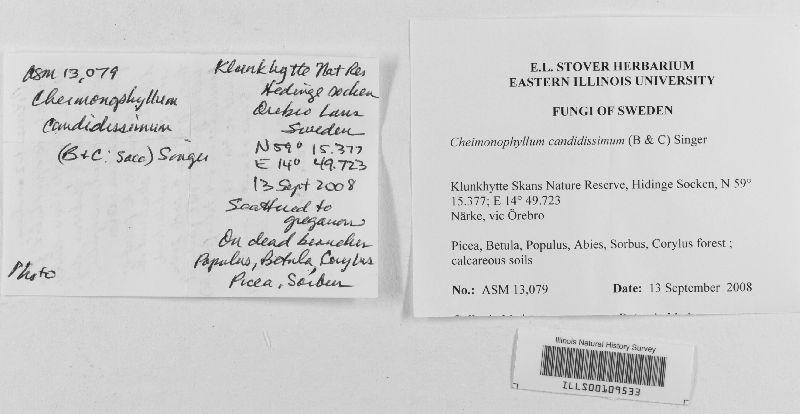 ASM 13,079
Cheimonophyllum
candidissimum
(B+C: Sacc) Singer
Photo
Klunkhytte Nat Res
Hidinge socken
Örebro Lans
Sweden
N 59° 15.377
E 14° 49.723
13 Sept 2008
Scattered to
gregarious
On dead branches
Populus, Betula, Corylus
Picea, Sorbus
E.L. STOVER HERBARIUM
EASTERN ILLINOIS UNIVERSITY
FUNGI OF SWEDEN
Cheimonophyllum candidissimum (B & C) Singer
Klunkhytte Skans Nature Reserve, Hidinge Socken, N 59°
15.377; E 14° 49.723
Närke, vic Örebro
Picea, Betula, Populus, Abies, Sorbus, Corylus forest ;
calcareous soils
No.: ASM 13,079 Date: 13 September 2008
Illinois Natural History Survey
ILLS00109533